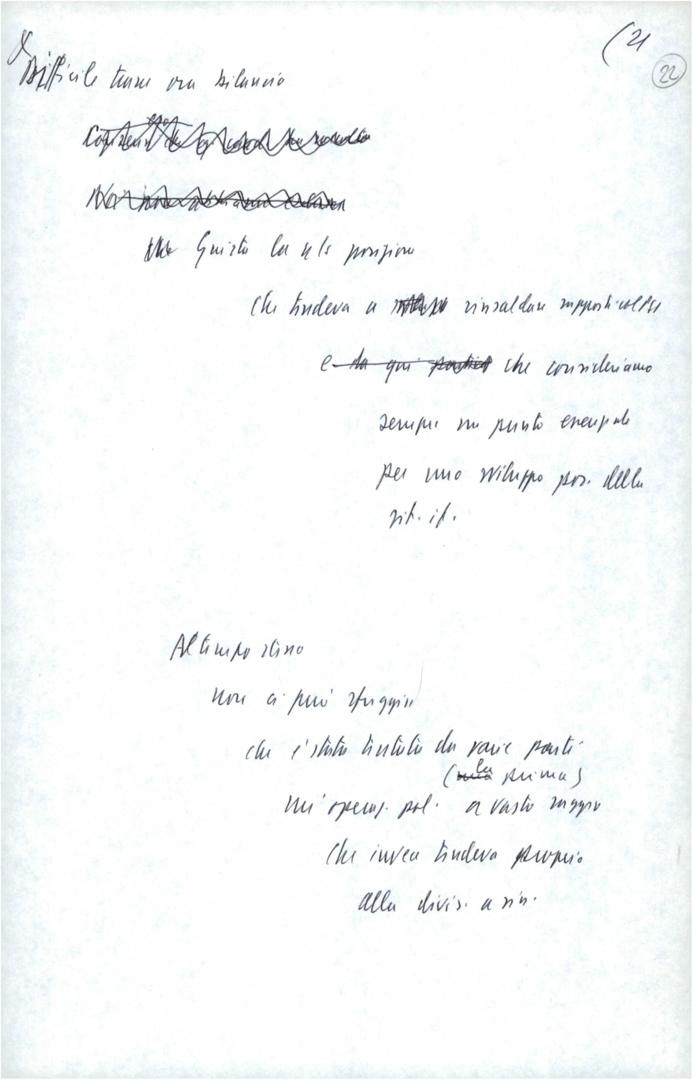 (21
22
Difficile trarre ora bilancio
Giusta la ns posizione
che tendeva a rinsaldare rapporti col PSI
e da qui partire che consideriamo
sempre un punto essenziale
per uno sviluppo pos. della
sit. it.
Al tempo stesso
non ci può sfuggire
che è stata tentata da varie parti
(la prima)
un'operaz. pol. a vasto raggio
che invece tendeva proprio
alla divis. a sin.